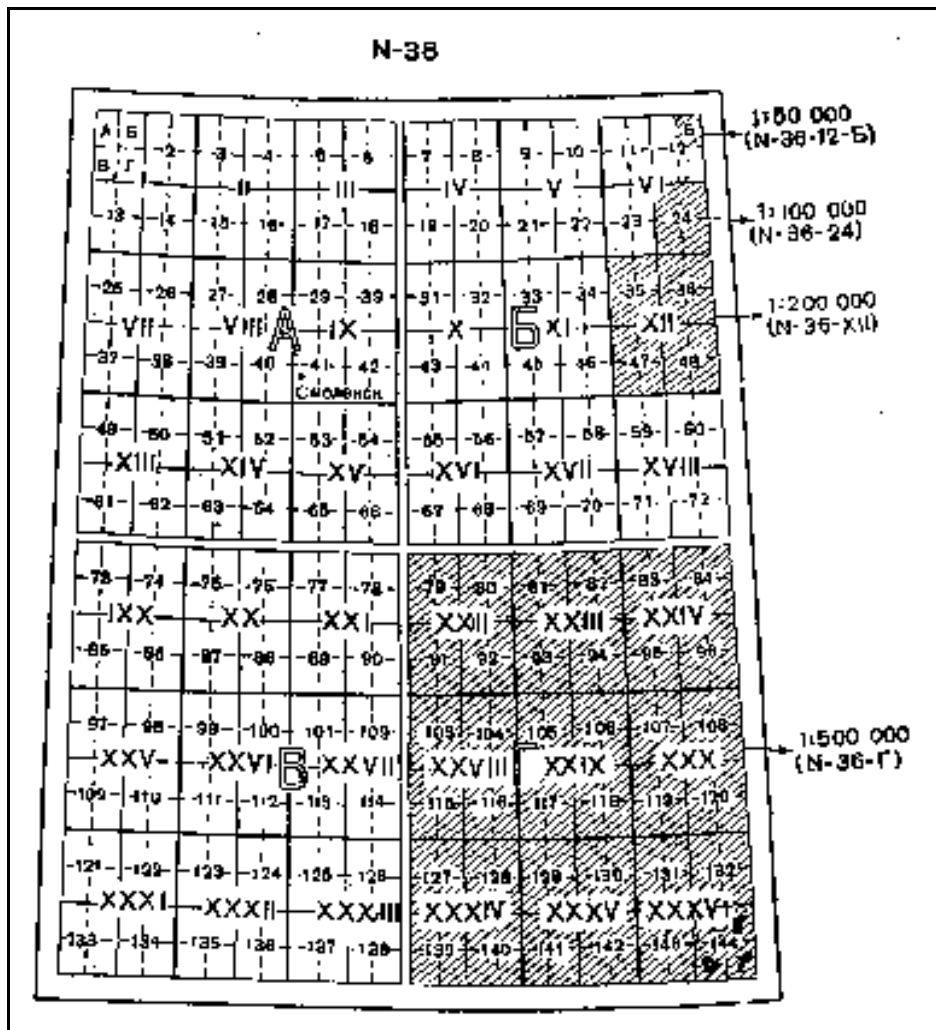 N-38
А Б 2 3 4 5 6 7 8 9 10 11 12 Б
1:50 000
(N-36-12-Б)
В Г
I II III IV V VI
13 14 15 16 17 18 19 20 21 22 23 24
1:100 000
(N-36-24)
25 26 27 28 29 30 31 32 33 34 35 36
VII VIII А IX X Б XI XII
1:200 000
(N-36-XII)
37 38 39 40 41 42 43 44 45 46 47 48
Смоленск
49 50 51 52 53 54 55 56 57 58 59 60
XIII XIV XV XVI XVII XVIII
61 62 63 64 65 66 67 68 69 70 71 72
73 74 75 76 77 78 79 80 81 82 83 84
XIX XX XXI XXII XXIII XXIV
85 86 87 88 89 90 91 92 93 94 95 96
97 98 99 100 101 102 103 104 105 106 107 108
XXV XXVI В XXVII XXVIII Г XXIX XXX
1:500 000
(N-36-Г)
109 110 111 112 113 114 115 116 117 118 119 120
121 122 123 124 125 126 127 128 129 130 131 132
XXXI XXXII XXXIII XXXIV XXXV XXXVI
133 134 135 136 137 138 139 140 141 142 143 144